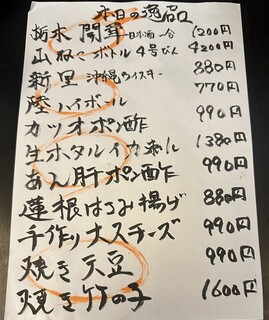 本日の逸品
栃木 開華 日本酒一合 1200円
山ねこボトル4号びん 4200円
新里 沖縄ウイスキー 880円
陸ハイボール 770円
カツオポン酢 990円
生ホタルイカ刺し 1380円
あん肝ポン酢 990円
蓮根はさみ揚げ 880円
手作りナスチーズ 990円
焼き天豆 990円
焼き竹の子 1600円